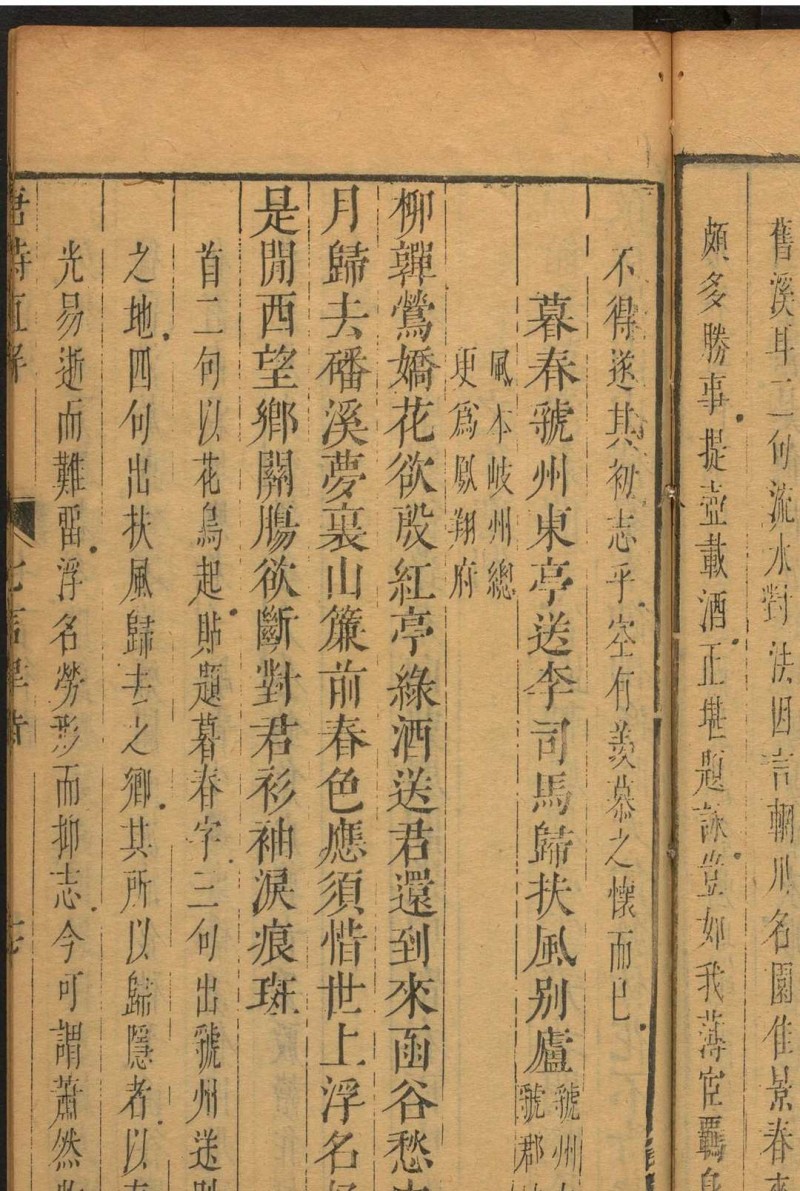 舊溪耳二句流水對法因言輞川名園佳景春來
頗多勝事提壺載酒正堪題詠豈如我薄宦羈身
不得遂其初志乎空有羨慕之懷而已
暮春虢州東亭送李司馬歸扶風別廬
虢州
虢郡
風本岐州總
更爲鳳翔府
柳嚲鶯嬌花欲殷紅亭綠酒送君還到來函谷愁
月歸去磻溪夢裏山簾前春色應須惜世上浮名
是閒西望鄉關腸欲斷對君衫袖淚痕斑
首二句以花鳥起貼題暮春字三句出虢州送別
之地四句出扶風歸去之鄉其所以歸隱者以
光易逝而難留浮名勞形而抑志今可謂蕭然
唐詩直解
七言律詩